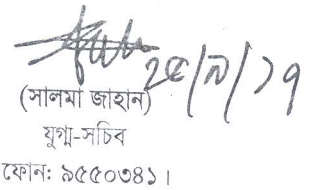 ২৫/৯/১৭
(সালমা জাহান)
যুগ্ম-সচিব
ফোন: ৯৫৫০৩৪১।